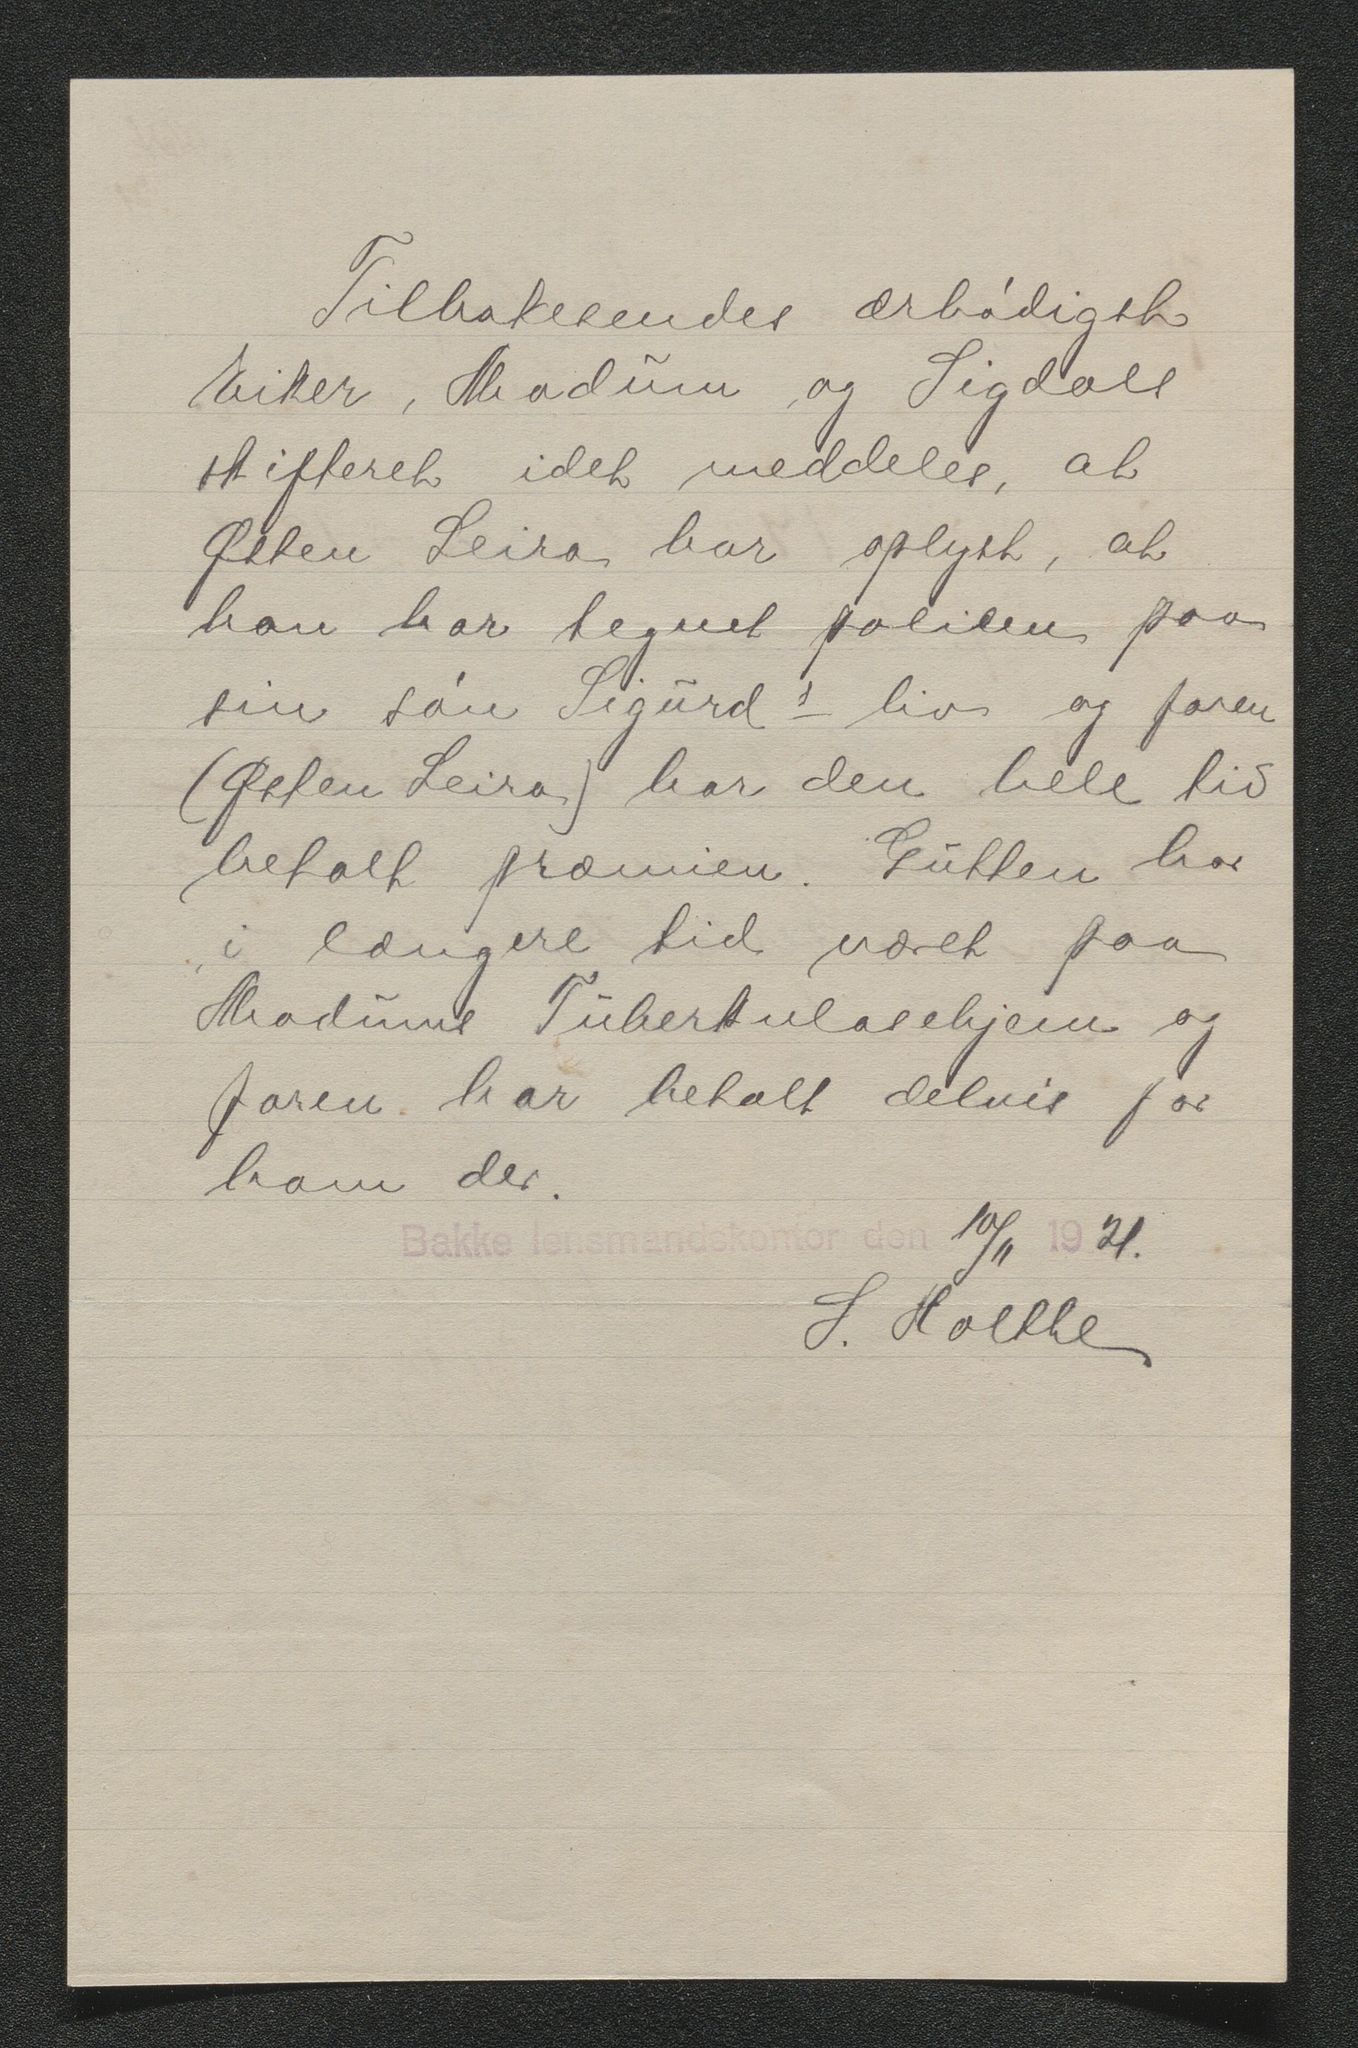 Tilbakesendes ærbødigst
Eiker, Modum og Sigdals
skifteret idet meddeles, at
Østen Leira har oplyst, at
han har tegnet policen paa
sin søn Sigurd's liv og faren
(Østen Leira) har den hele tid
betalt præmien. Gutten har
i længere tid været paa
Modums Tuberkulosehjem og
faren har betalt delvis for
ham der.
Bakke lensmandskontor den 10/11 1921.
S. Holthe